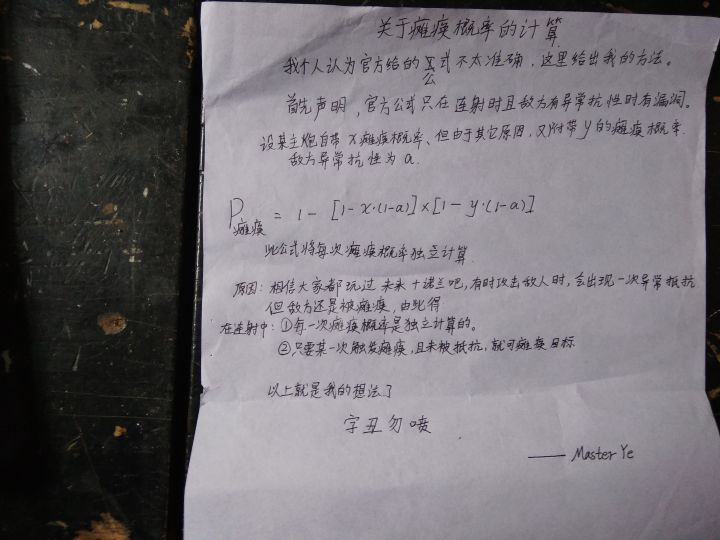 关于瘫痪概率的计算.
我个人认为官方给的公式不太准确，这里给出我的方法。
首先声明，官方公式只在连射时且敌方有异常抗性时有漏洞。
设某主炮自带 x 瘫痪概率、但由于其它原因，又附带 y 的瘫痪概率.
敌方异常抗性为 a.
P瘫痪 = 1 - [1-x·(1-a)]×[1-y·(1-a)]
此公式将每次瘫痪概率独立计算.
原因：相信大家都玩过 未来+诺兰吧，有时攻击敌人时，会出现一次异常抵抗
但敌方还是被瘫痪，由此得
在连射中：①每一次瘫痪概率是独立计算的。
②只要某一次触发瘫痪，且未被抵抗，就可瘫痪目标
以上就是我的想法了
字丑勿喷
—— Master Ye